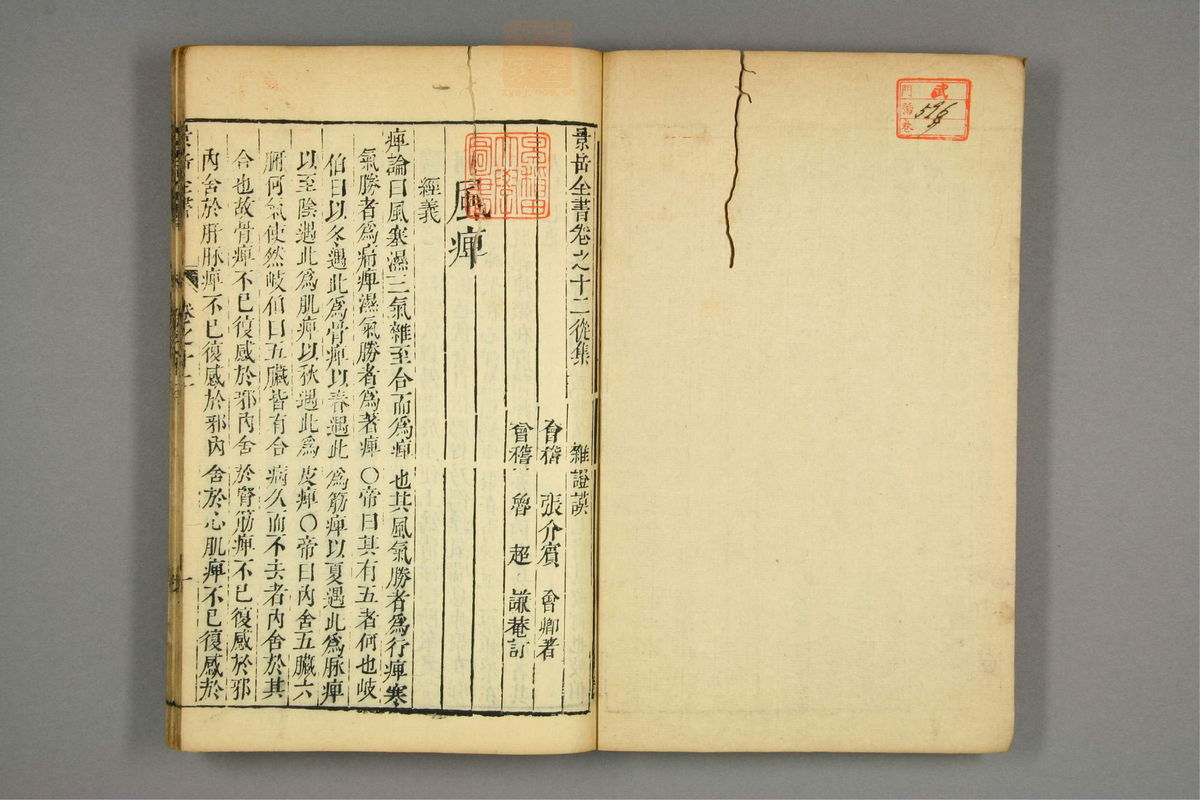 武
門
卷
景岳全書卷之十二從集 雜證謨
會稽 張介賓 會卿著
會稽 魯 超 謙菴訂
風痺
經義
痺論曰風寒濕三氣雜至合而爲痺也其風氣勝者爲行痺寒
氣勝者爲痛痺濕氣勝者爲著痺○帝曰其有五者何也岐
伯曰以冬遇此爲骨痺以春遇此爲筋痺以夏遇此爲脉痺
以至陰遇此爲肌痺以秋遇此爲皮痺○帝曰內舍五臟六
腑何氣使然岐伯曰五臟皆有合病久而不去者內舍於其
合也故骨痺不已復感於邪內舍於腎筋痺不已復感於邪
內舍於肝脉痺不已復感於邪內舍於心肌痺不已復感於
景岳全書 卷之十二 一